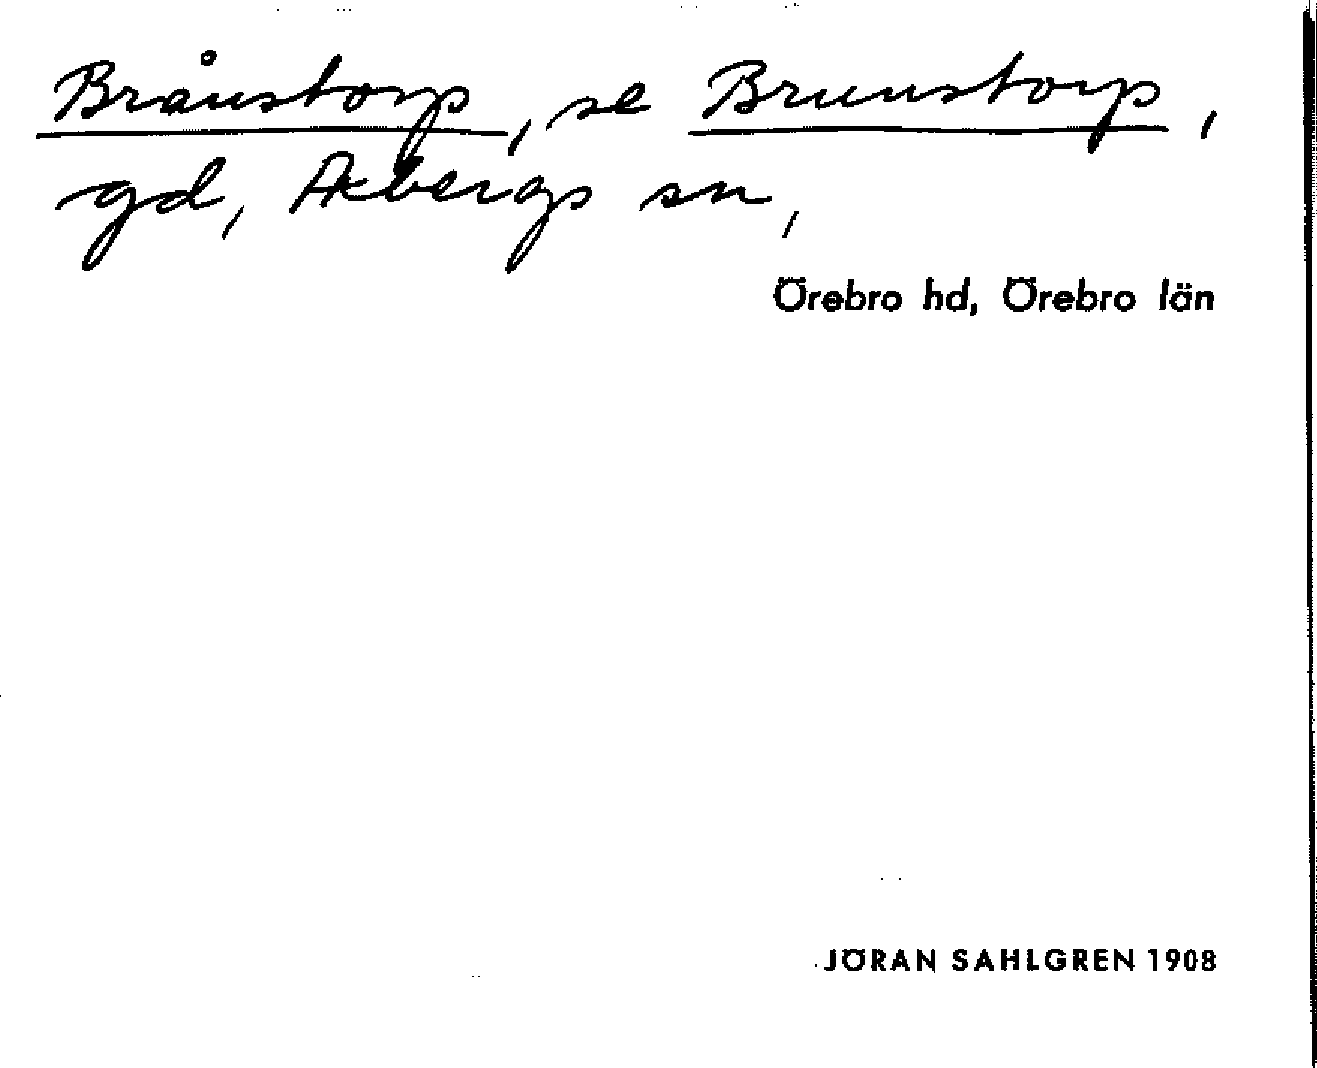 Bråustorp, se Brunstorp,
gd, Axbergs sn,
Örebro hd, Örebro län
JÖRAN SAHLGREN 1908